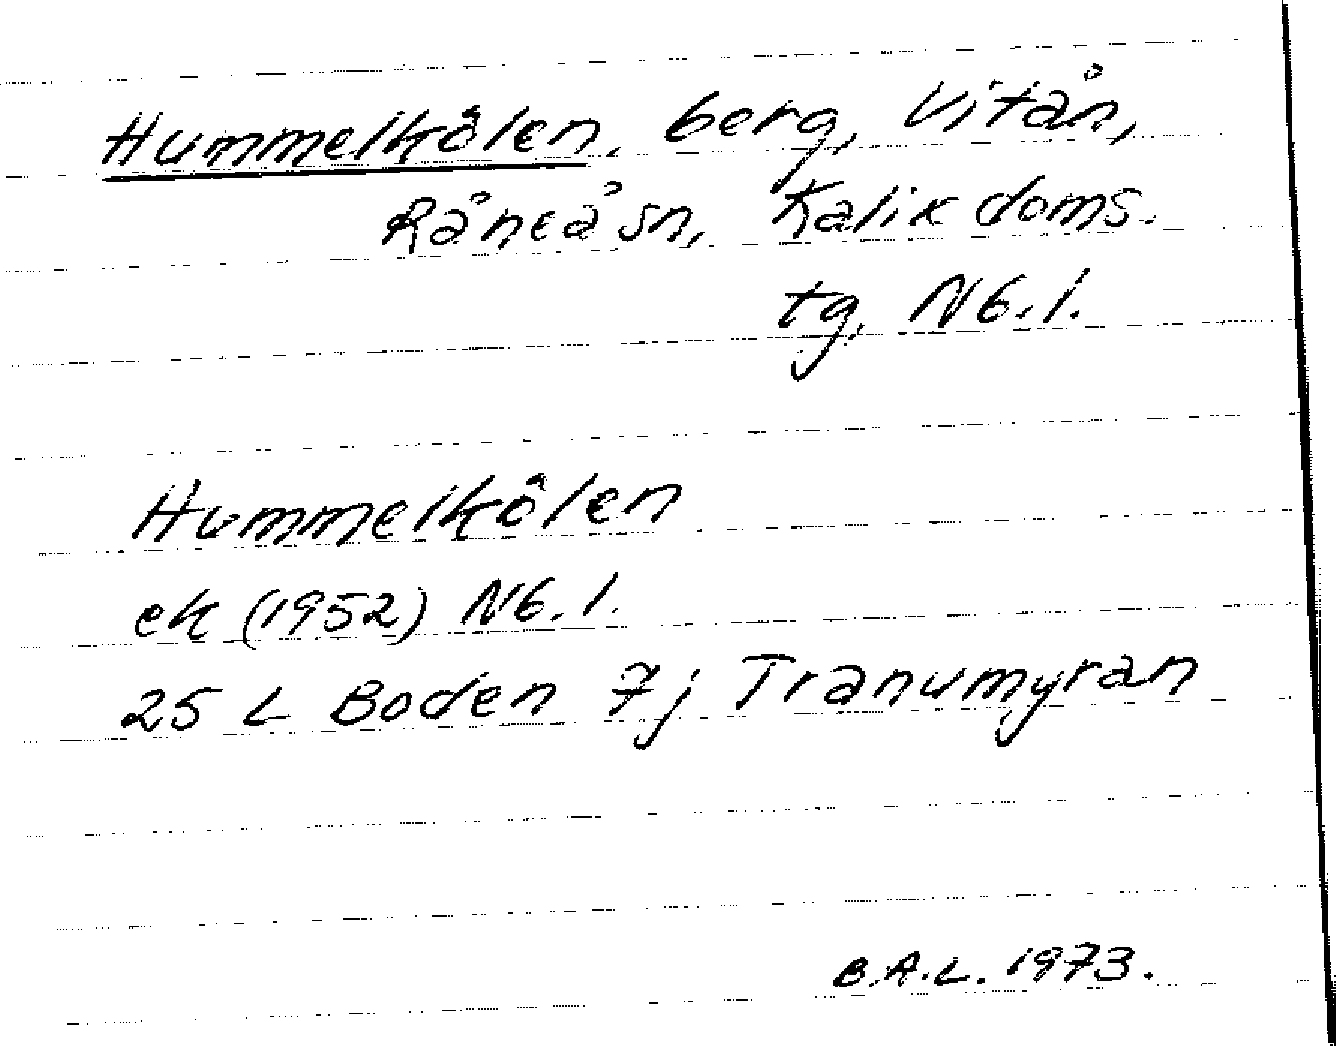 Hummelkölen, berg, Vitån,
Råneå sn, Kalix doms.
tg, Nb.l.
Hummelkölen
ek (1952) Nb.l.
25 L Boden 7j Tranumyran
B.A.L. 1973.